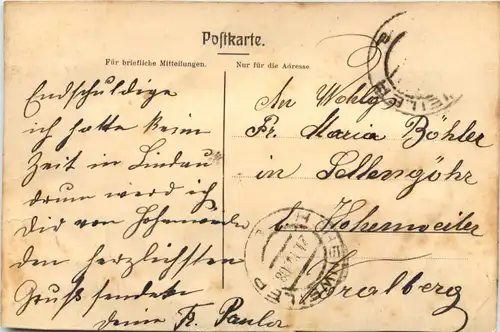 Postkarte.
Für briefliche Mitteilungen.
Nur für die Adresse
Endschuldige
ich hatte keine
Zeit in Lindau
drum werd ich
Dir von Hohenweiler
den herzlichsten
Gruß sendet
deine Fr. Paula
An Wohlg
Fr. Maria Böhler
in Gellengöhr
bei Hohenweiler
Vralberg